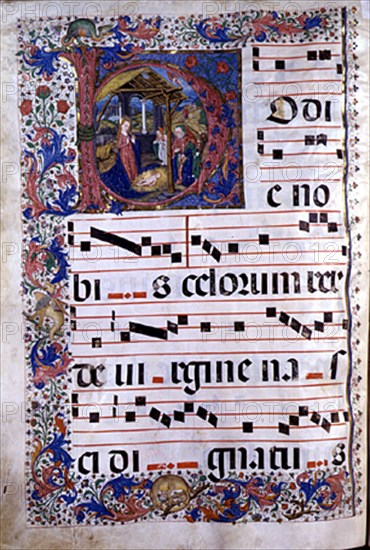 Hodi
e no
bi s celorum rex
de vi rgine na s
ci di gnatu s